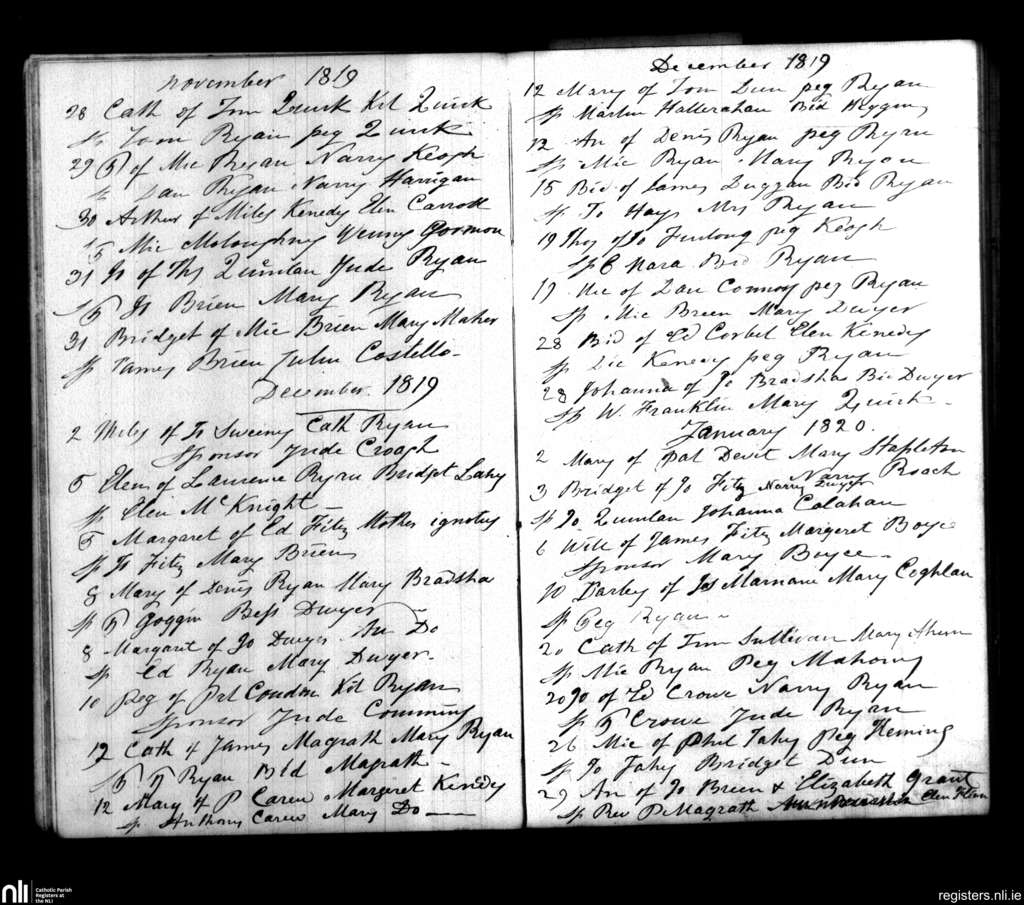 november 1819
28 Cath of Tim Quirk Kit Quirk
Sp Tom Ryan peg Quirk
29 of Mic Regan Narry Keogh
Sp Dan Ryan Narry Harrigan
30 Arthur of Miles Kenedy Elen Carroll
Mic Moloughny Gorman
31 Jo of Thos Quinlan Jude Ryan
Sp Jo Brien Mary Ryan
31 Bridget of Mic Brien Mary Maher
Sp James Brien Costello
December 1819
2 Miles of Jo Sweeny Cath Ryan
Sponsor Jude Croagh
5 Elen of Laurence Ryan Bridget Lahy
Sp Elen McKnight
5 Margaret of Ed Fitz Mother ignotus
Sp Jo Fitz Mary Brien
8 Mary of Denis Ryan Mary Bradsha
Sp Goggin Bess Dwyer
8 Margaret of Jo Dwyer An Do
Sp Ed Ryan Mary Dwyer
10 Peg of Pat Condon Kit Ryan
Sponsor Jude Comming
12 Cath of James Magrath Mary Ryan
Sp Ryan Bid Magrath
12 Mary of P Carew Margeret Kenedy
Sp Anthony Carew Mary Do
December 1819
12 Mary of Tom Dun peg Ryan
Sp Martin Hallerahan Bid Higgins
12 An of Denis Ryan peg Ryan
Sp Mic Ryan Mary Ryan
15 Bid of James Duggan Bid Ryan
Sp Jo Hay Mrs Ryan
19 Thos of Jo Furlong peg Keogh
Sp Bid Ryan
19 Mic of Dan Connory peg Ryan
Sp Mic Breen Mary Dwyer
28 Bid of Ed Corbet Elen Kenedy
Sp Kenedy peg Ryan
28 Johanna of Jo Bradsha Bid Dwyer
Sp W. Franklin Mary Quirk
January 1820.
2 Mary of Pat Devit Mary Stapleton
Narry Roach
3 Bridget of Jo Fitz Narry Dwyer
Sp Jo Quinlan Johanna Calahan
6 Will of James Fitz Margeret Boyce
Sponsor Mary Boyce
10 Darby of Jas Marnane Mary Coghlan
Sp Peg Ryan
20 Cath of Tim Sullivan Mary Ahern
Sp Mic Ryan Peg Mahony
20 Jo of Ed Crowe Narry Ryan
Sp Crowe Jude Ryan
26 Mic of Phil Fahy Peg Fleming
Sp Jo Fahy Bridget Dun
29 An of Jo Breen & Elizabeth Grant
Sp Rev P Magrath Elen
nli
Catholic Parish
Registers at
the NLI
registers.nli.ie